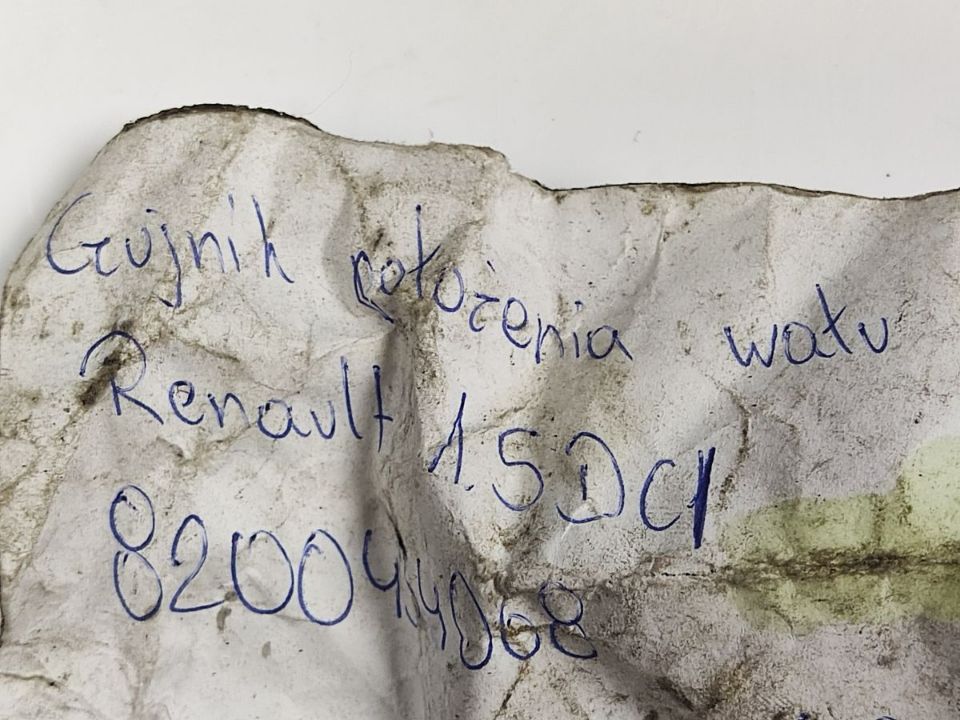 Czujnik położenia wału
Renault 1.5 DCI
8200444068